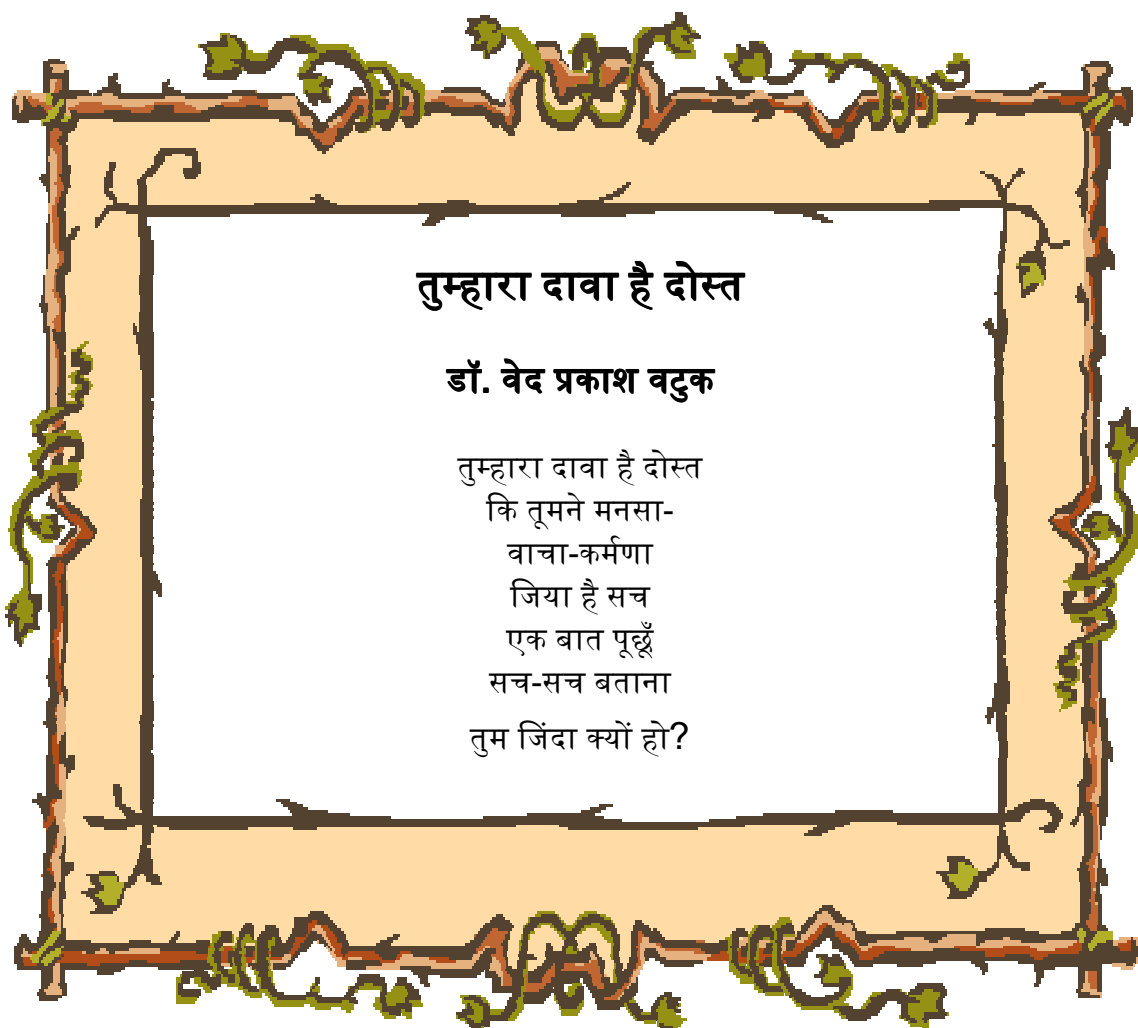 तुम्हारा दावा है दोस्त
डॉ. वेद प्रकाश वटुक
तुम्हारा दावा है दोस्त
कि तूमने मनसा-
वाचा-कर्मणा
जिया है सच
एक बात पूछूँ
सच-सच बताना
तुम जिंदा क्यों हो?